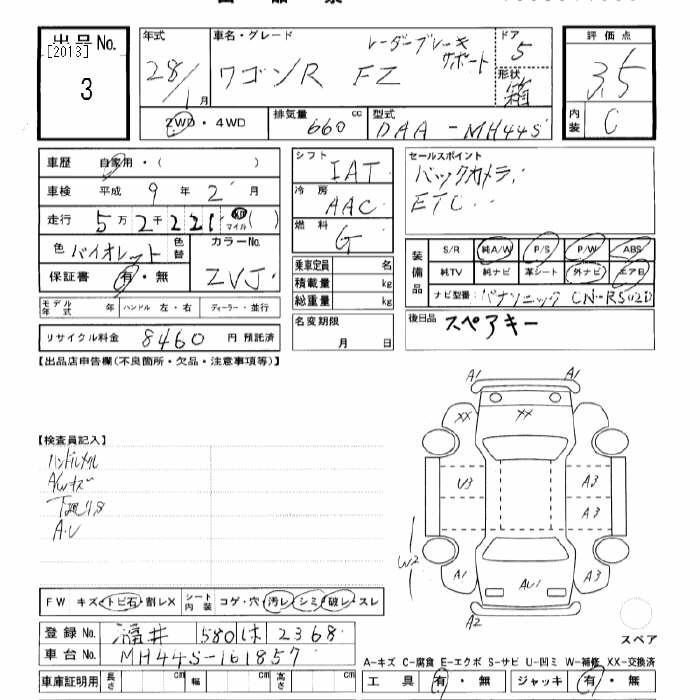 出品No.
[2013]
3
年式
28/1月
車名・グレード
ワゴンR FZ
レーダーブレーキ
サポート
ドア
5
形状
箱
評価点
3.5
内装
C
2WD・4WD
排気量
660
cc
型式
DAA-MH44S
車歴 自家用・( )
車検 平成 9年 2月
走行 5万2千221 km マイル ( )
色 バイオレット 色替
カラーNo.
ZVJ
保証書 有・無
モデル年式 年 ハンドル 左・右 ディーラー・並行
リサイクル料金 8460 円預託済
シフト
IAT
冷房
AAC
燃料
G
乗車定員 名
積載量 kg
総重量 kg
名変期限
月 日
セールスポイント
バックカメラ
ETC
装備品
S/R 純A/W P/S P/W ABS
純TV 純ナビ 革シート 外ナビ エアB
ナビ型番 パナソニック CN-RS02D
後日品 スペアキー
【出品店申告欄(不良箇所・欠品・注意事項等)】
【検査員記入】
ハンドルスレ
A/Wキズ
下廻りS
A・U
A1 A1
XX XX
U3 A3
A3
W2
A1 AU1 A3
A2
スペア
FW キズ・トビ石・割レX シート内装 コゲ・穴・汚レ・シミ・破レ・スレ
登録No. 福井 580 は 2368
車台No. MH44S-161857
車庫証明用 長さ cm 幅 cm 高さ cm
A-キズ C-腐食 E-エクボ S-サビ U-凹ミ W-補修 XX-交換済
工具 有・無 ジャッキ 有・無